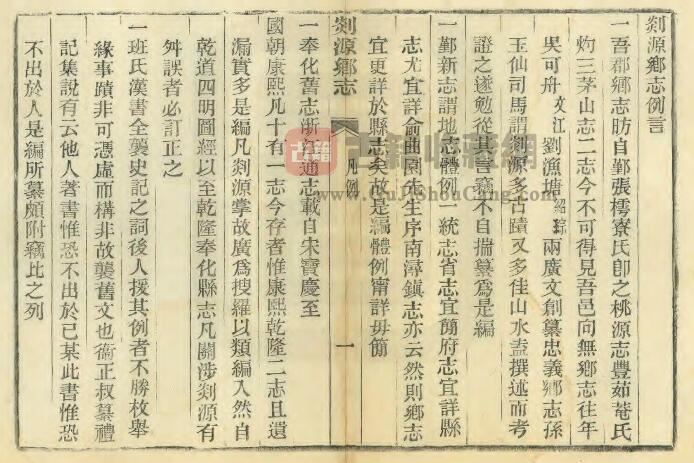 剡源鄉志例言
一吾郡鄉志昉自鄞張樗寮氏卽之桃源志豐茹菴氏
灼三茅山志二志今不可得見吾邑向無鄉志往年
吳可舟文江劉漁塘紹琮兩廣文創纂忠義鄉志孫
玉仙司馬謂剡源多古蹟又多佳山水盍撰述而考
證之遂勉從其言竊不自揣纂爲是編
一鄞新志謂地志體例一統志省志宜簡府志宜詳縣
志尤宜詳俞曲園先生序南潯鎮志亦云然則鄉志
宜更詳於縣志矣故是編體例甯詳毋簡
剡源鄉志
凡例
一
一奉化舊志浙江通志載自宋寶慶至
國朝康熙凡十有一志今存者惟康熙乾隆二志且遺
漏實多是編凡剡源掌故廣爲搜羅以類編入然自
乾道四明圖經以至乾隆奉化縣志凡關涉剡源有
舛誤者必訂正之
一班氏漢書全襲史記之詞後人援其例者不勝枚舉
緣事蹟非可憑虛而構非故襲舊文也衞正叔纂禮
記集說有云他人著書惟恐不出於己某此書惟恐
不出於人是編所纂頗附竊比之列